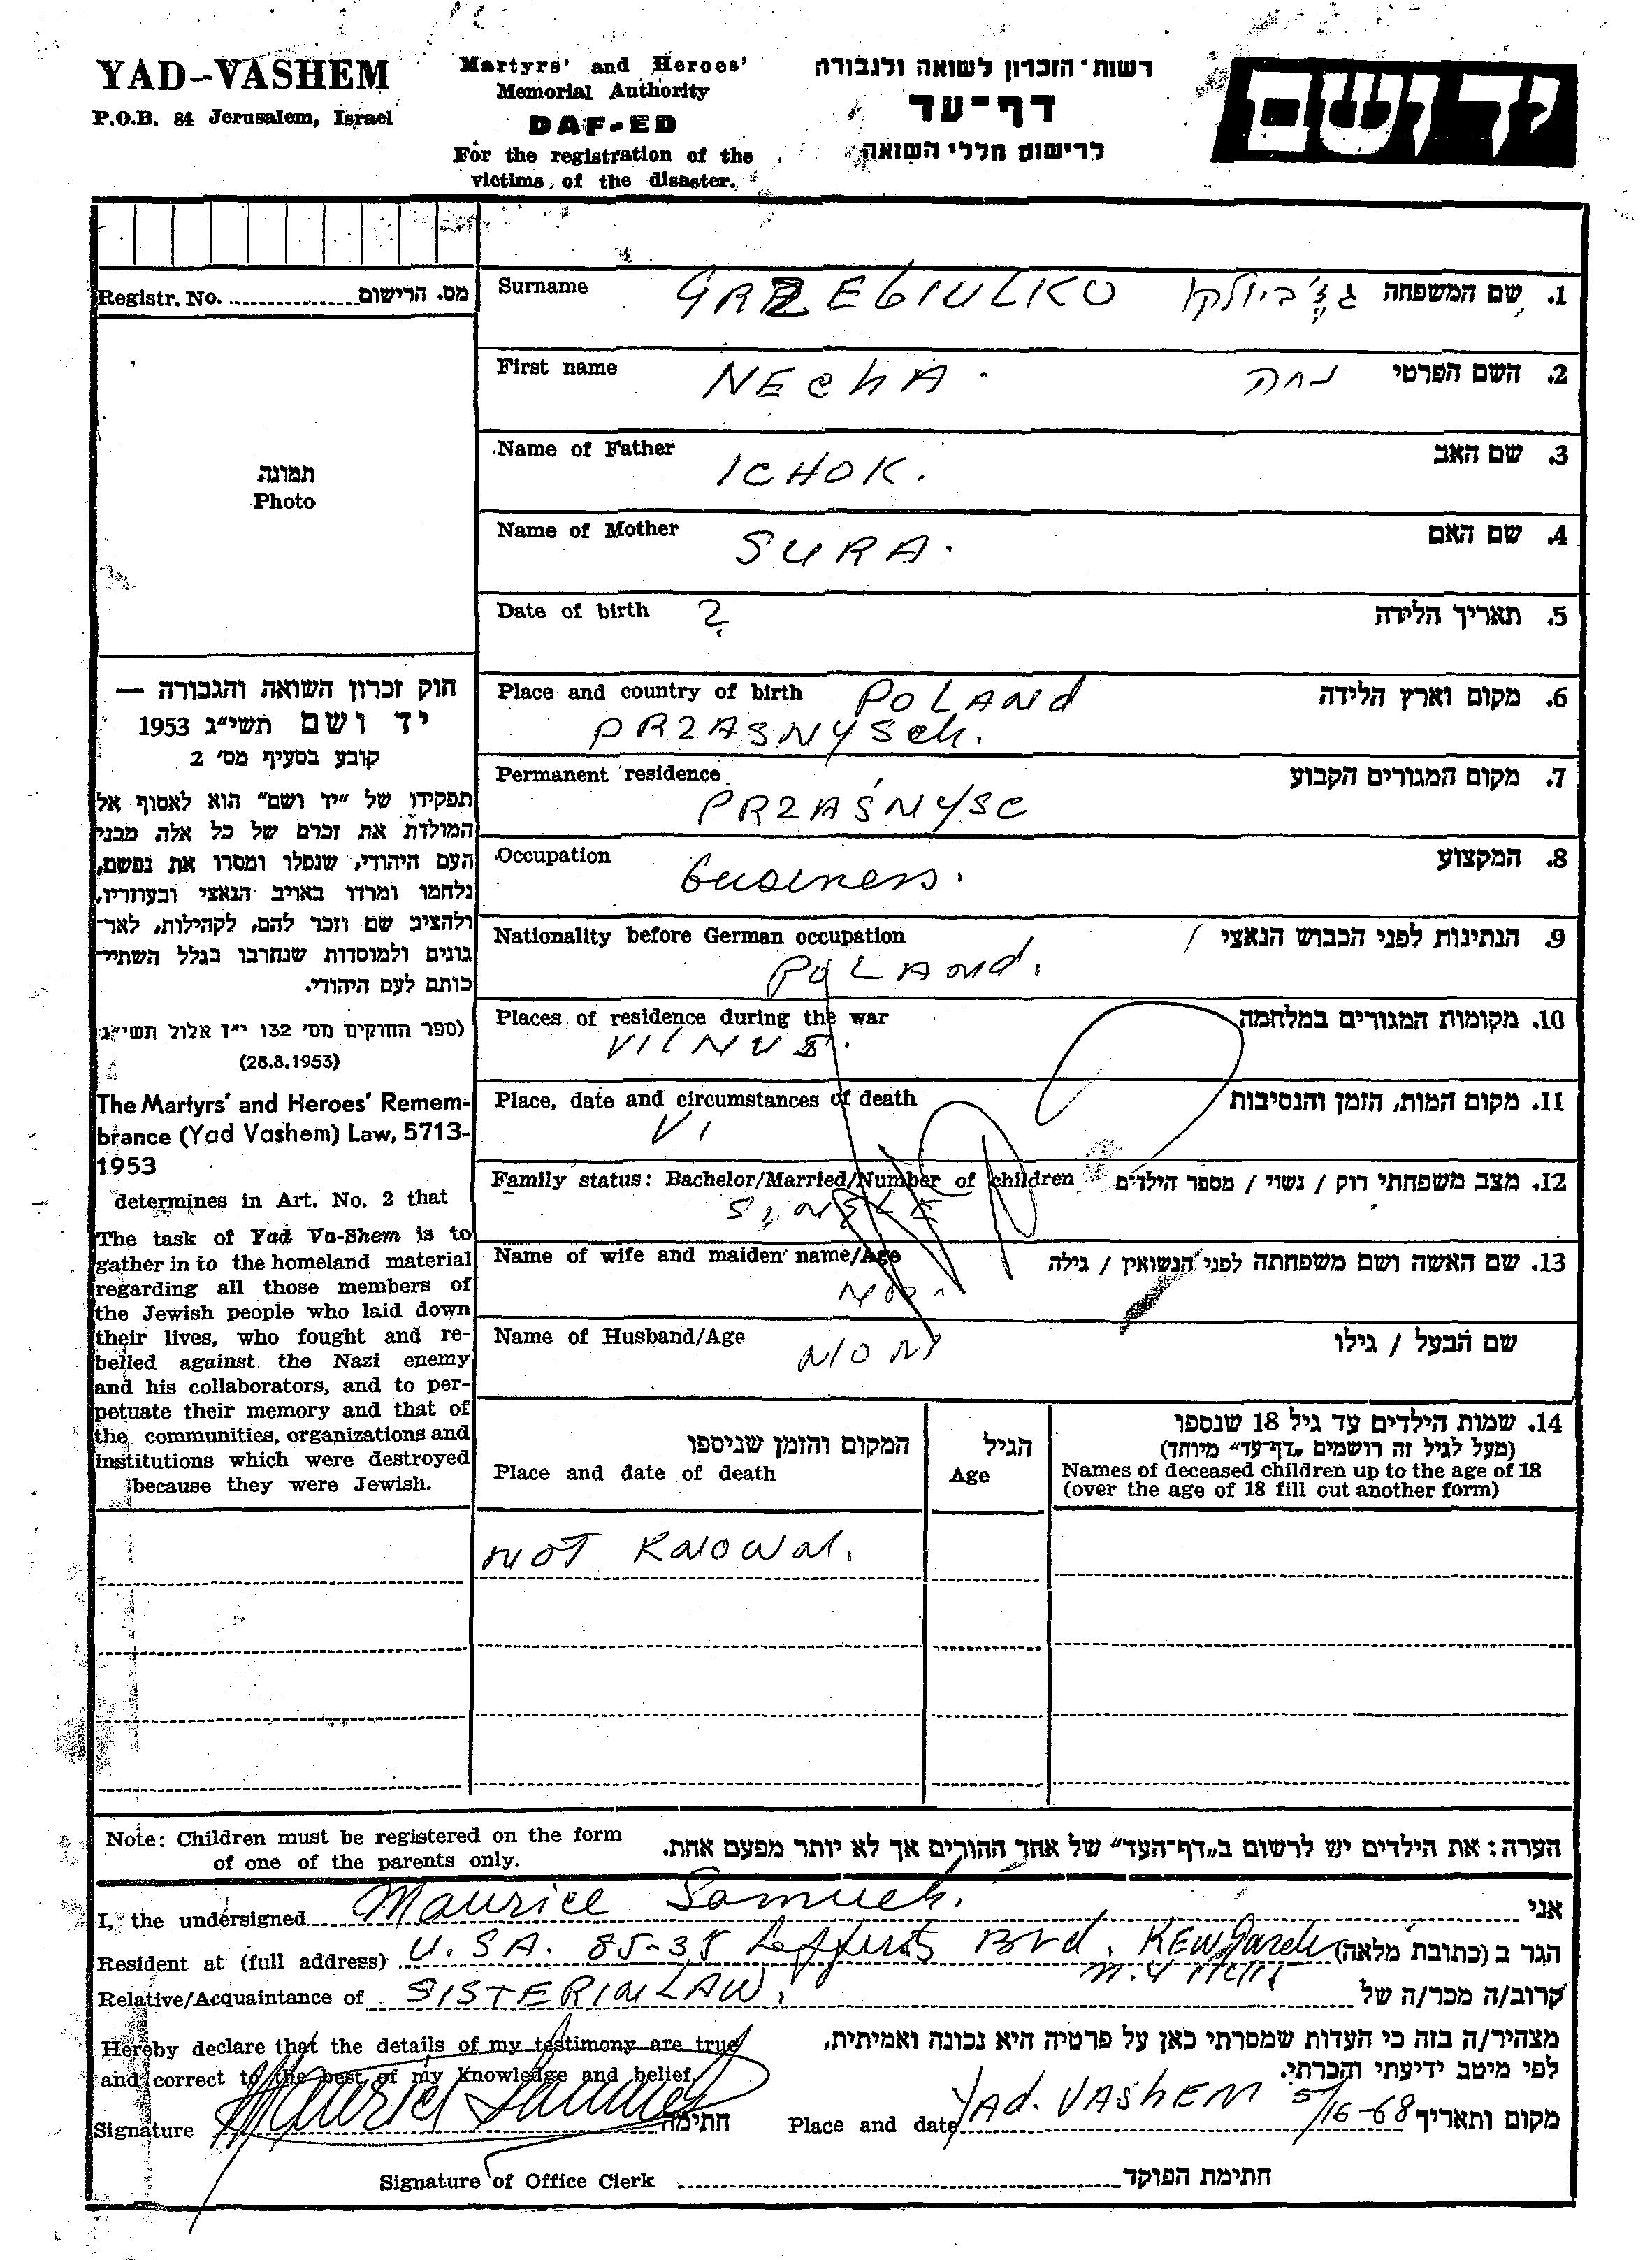 YAD-VASHEM
P.O.B. 84 Jerusalem, Israel
Martyrs' and Heroes'
Memorial Authority
DAF-ED
For the registration of the
victims of the disaster.
רשות-הזכרון לשואה ולגבורה
דף-עד
לרישום חללי השואה
יד ושם
Registr. No. מס. הרישום
תמונה
Photo
חוק זכרון השואה והגבורה —
יד ושם תשי"ג 1953
קובע בסעיף מס' 2
תפקידו של "יד ושם" הוא לאסוף אל
המולדת את זכרם של כל אלה מבני
העם היהודי, שנפלו ומסרו את נפשם,
נלחמו ומרדו באויב הנאצי ובעוזריו,
ולהציב שם וזכר להם, לקהילות, לאר-
גונים ולמוסדות שנחרבו בגלל השתיי-
כותם לעם היהודי.
(ספר החוקים מס' 132 י"ד אלול תשי"ג
(28.8.1953)
The Martyrs' and Heroes' Remem-
brance (Yad Vashem) Law, 5713-
1953
determines in Art. No. 2 that
The task of Yad Va-Shem is to
gather in to the homeland material
regarding all those members of
the Jewish people who laid down
their lives, who fought and re-
belled against the Nazi enemy
and his collaborators, and to per-
petuate their memory and that of
the communities, organizations and
institutions which were destroyed
because they were Jewish.
Surname GRZEBIULKO 1. שם המשפחה
First name NEChA. נחה 2. השם הפרטי
Name of Father ICHOK. 3. שם האב
Name of Mother SURA. 4. שם האם
Date of birth ? 5. תאריך הלידה
Place and country of birth POLANd 6. מקום וארץ הלידה
PRZASNYSch.
Permanent residence 7. מקום המגורים הקבוע
PRZAŚNYSC
Occupation business. 8. המקצוע
Nationality before German occupation 9. הנתינות לפני הכבוש הנאצי
POLANd.
Places of residence during the war 10. מקומות המגורים במלחמה
VILNUS.
Place, date and circumstances of death 11. מקום המות, הזמן והנסיבות
VI
Family status: Bachelor/Married/Number of children 12. מצב משפחתי רוק / נשוי / מספר הילדים
SINGLE
Name of wife and maiden name/Age 13. שם האשה ושם משפחתה לפני הנשואין / גילה
No.
Name of Husband/Age שם הבעל / גילו
המקום והזמן שניספו
Place and date of death
הגיל
Age
14. שמות הילדים עד גיל 18 שנספו
(מעל לגיל זה רושמים "דף-עד" מיוחד)
Names of deceased children up to the age of 18
(over the age of 18 fill out another form)
NOT KNOWN.
Note: Children must be registered on the form
of one of the parents only.
הערה: את הילדים יש לרשום ב"דף-העד" של אחד ההורים אך לא יותר מפעם אחת.
I, the undersigned Maurice Samuel. אני
Resident at (full address) U.SA. 85-35 Lefferts Blvd. KEW Garde הגר ב (כתובת מלאה)
N.Y
Relative/Acquaintance of SISTERINLAW. קרוב/ה מכר/ה של
Hereby declare that the details of my testimony are true
and correct to the best of my knowledge and belief.
מצהיר/ה בזה כי העדות שמסרתי כאן על פרטיה היא נכונה ואמיתית,
לפי מיטב ידיעתי והכרתי.
Signature Maurice Samuel חתימה Place and date YAd. VAShEM 5/16-68 מקום ותאריך
Signature of Office Clerk חתימת הפוקד